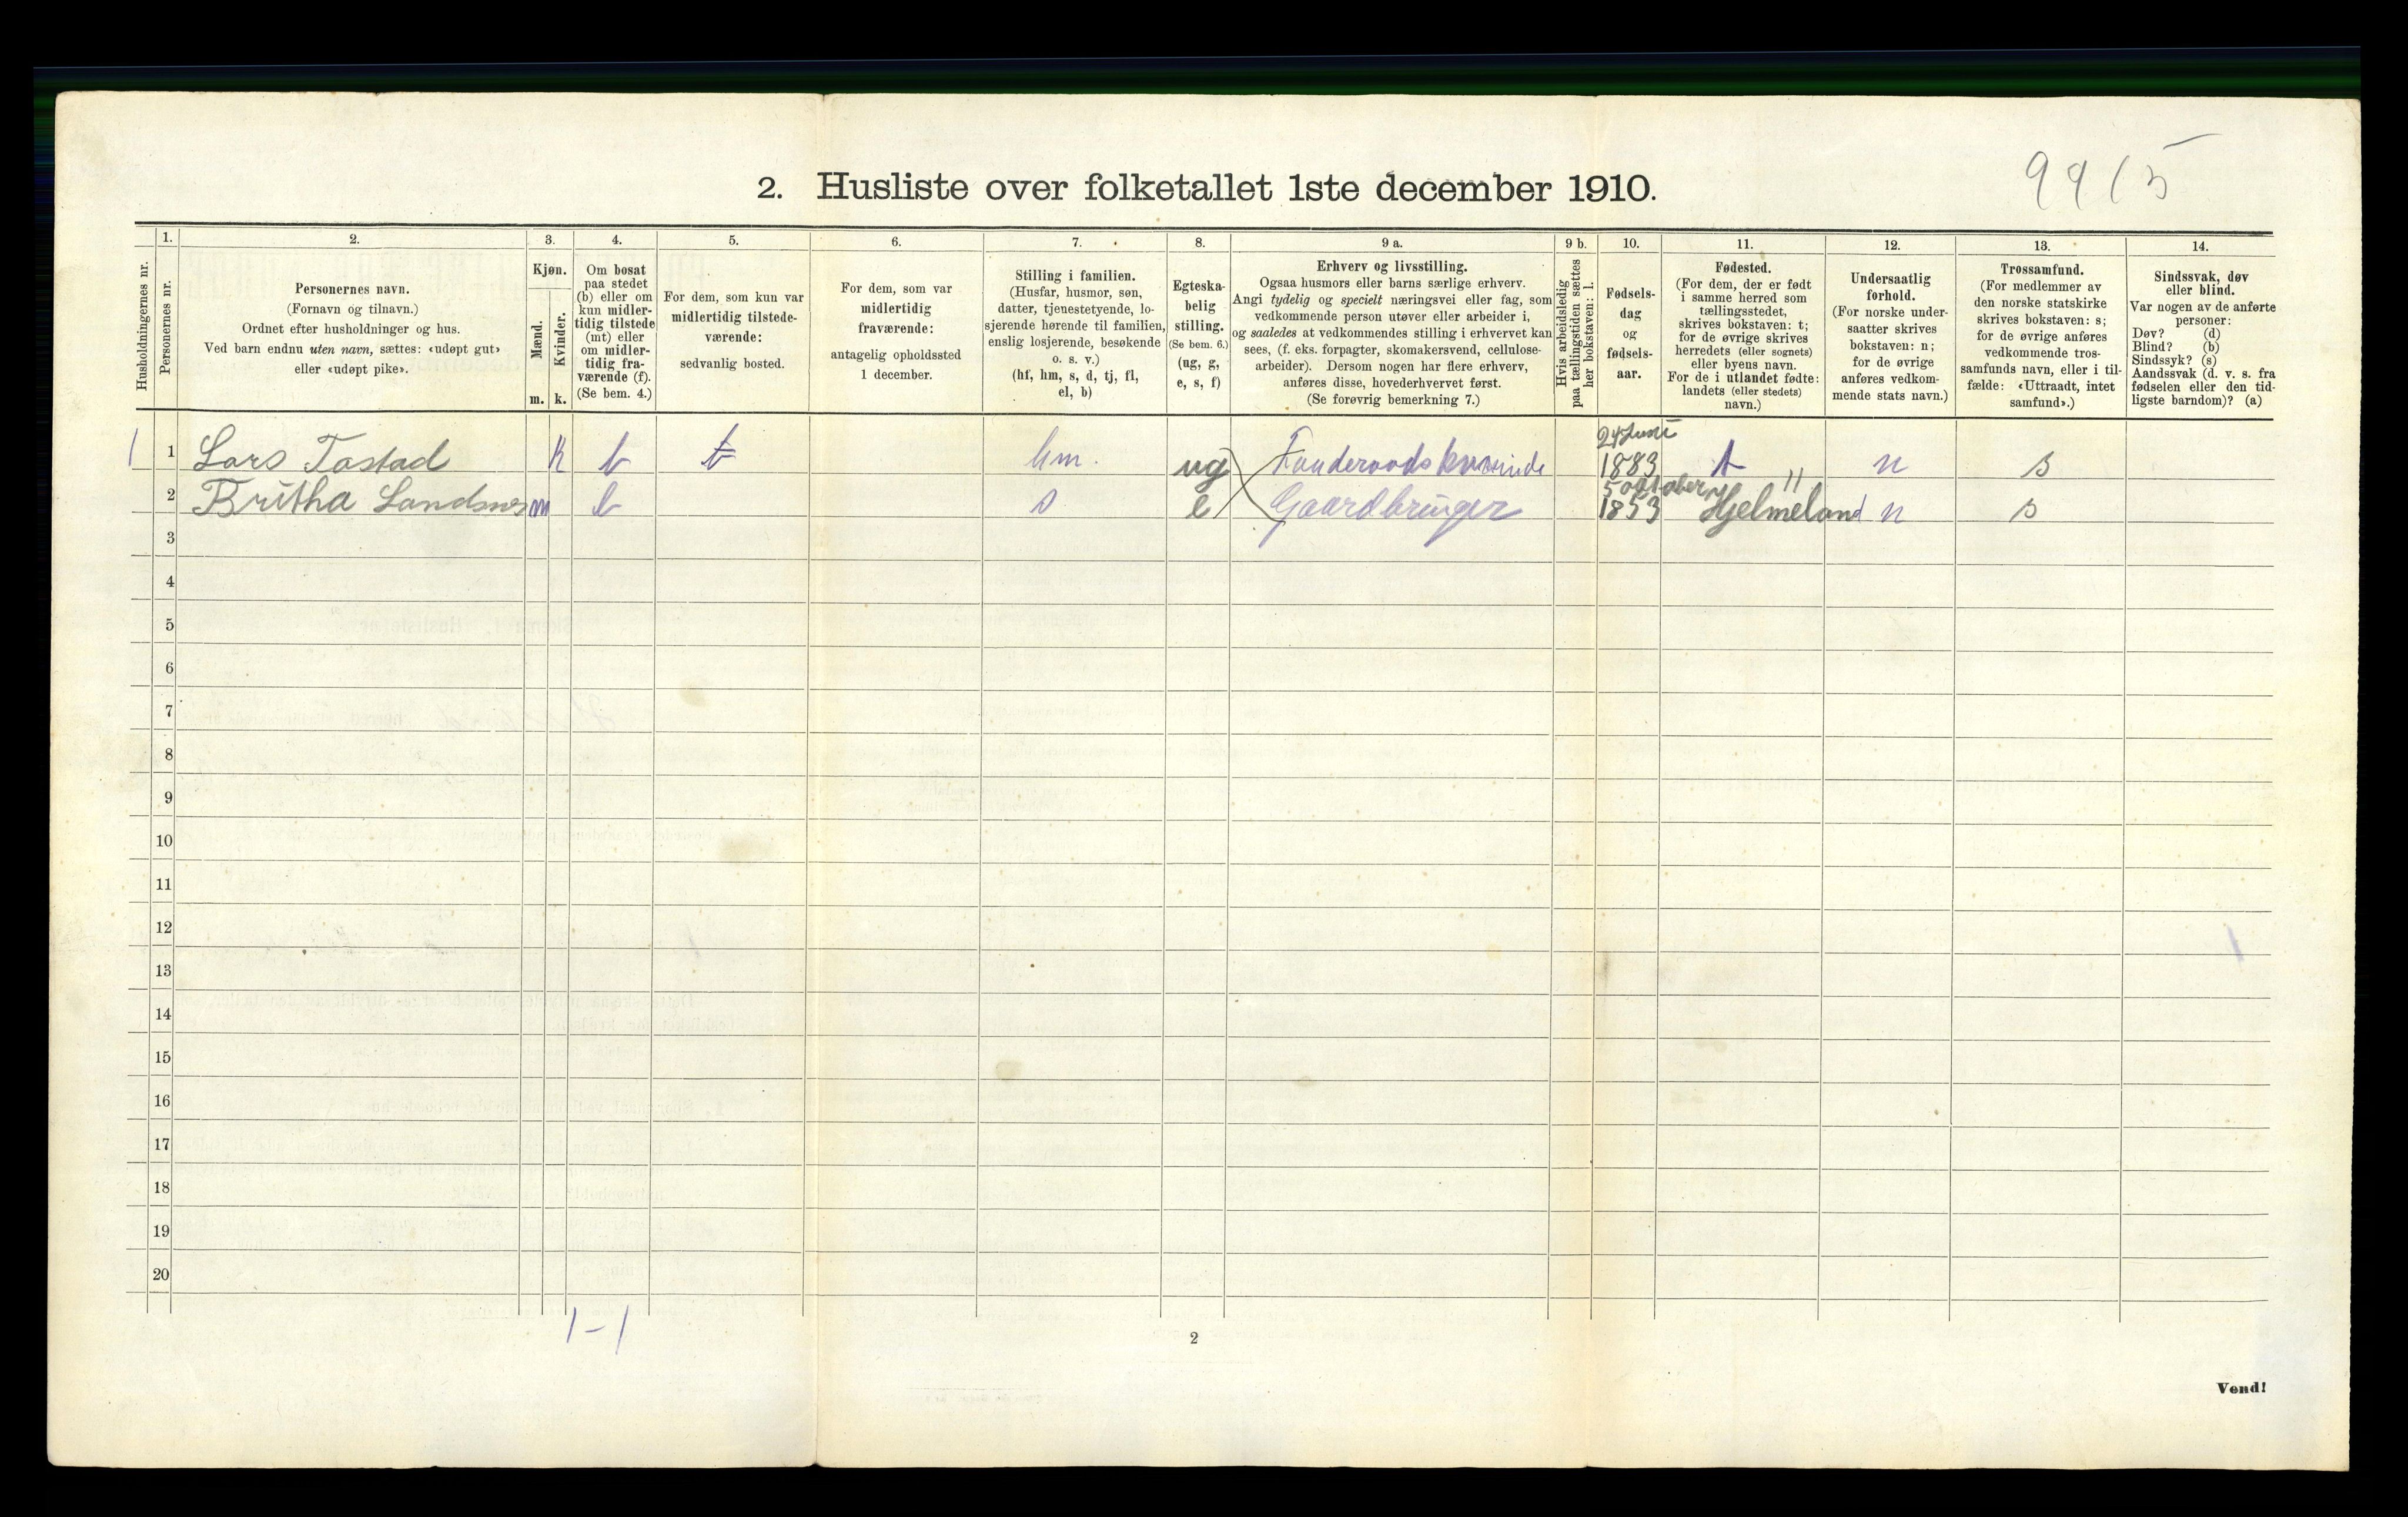 99 15
2. Husliste over folketallet 1ste december 1910.
Husholdningernes nr.
1.
Personernes nr.
2.
Personernes navn.
(Fornavn og tilnavn.)
Ordnet efter husholdninger og hus.
Ved barn endnu uten navn, sættes: «udøpt gut»
eller «udøpt pike».
3.
Kjøn.
Mænd.
Kvinder.
m. k.
4.
Om bosat
paa stedet
(b) eller om
kun midler-
tidig tilstede
(mt) eller
om midler-
tidig fra-
værende (f).
(Se bem. 4.)
5.
For dem, som kun var
midlertidig tilstede-
værende:
sedvanlig bosted.
6.
For dem, som var
midlertidig
fraværende:
antagelig opholdssted
1 december.
7.
Stilling i familien.
(Husfar, husmor, søn,
datter, tjenestetyende, lo-
sjerende hørende til familien,
enslig losjerende, besøkende
o. s. v.)
(hf, hm, s, d, tj, fl,
el, b)
8.
Egteska-
belig
stilling.
(Se bem. 6.)
(ug, g,
e, s, f)
9 a.
Erhverv og livsstilling.
Ogsaa husmors eller barns særlige erhverv.
Angi tydelig og specielt næringsvei eller fag, som
vedkommende person utøver eller arbeider i,
og saaledes at vedkommendes stilling i erhvervet kan
sees, (f. eks. forpagter, skomakersvend, cellulose-
arbeider). Dersom nogen har flere erhverv,
anføres disse, hovederhvervet først.
(Se forøvrig bemerkning 7.)
9 b.
Hvis arbeidsledig
paa tællingstiden sættes
her bokstaven: l.
10.
Fødsels-
dag
og
fødsels-
aar.
11.
Fødested.
(For dem, der er født
i samme herred som
tællingsstedet,
skrives bokstaven: t;
for de øvrige skrives
herredets (eller sognets)
eller byens navn.
For de i utlandet fødte:
landets (eller stedets)
navn.)
12.
Undersaatlig
forhold.
(For norske under-
saatter skrives
bokstaven: n;
for de øvrige
anføres vedkom-
mende stats navn.)
13.
Trossamfund.
(For medlemmer av
den norske statskirke
skrives bokstaven: s;
for de øvrige anføres
vedkommende tros-
samfunds navn, eller i til-
fælde: «Uttraadt, intet
samfund».)
14.
Sindssvak, døv
eller blind.
Var nogen av de anførte
personer:
Døv? (d)
Blind? (b)
Sindssyk? (s)
Aandssvak (d. v. s. fra
fødselen eller den tid-
ligste barndom)? (a)
24 Juni
1 1 Lars Tastad k b t hm. ug 1883 t n s
5 October
2 Britha Landsnes m b s e Gaardbruger 1853 Hjelmeland n s
3
4
5
6
7
8
9
10
11
12
13
14
15
16
17
18
19
20
1-1
2
Vend!